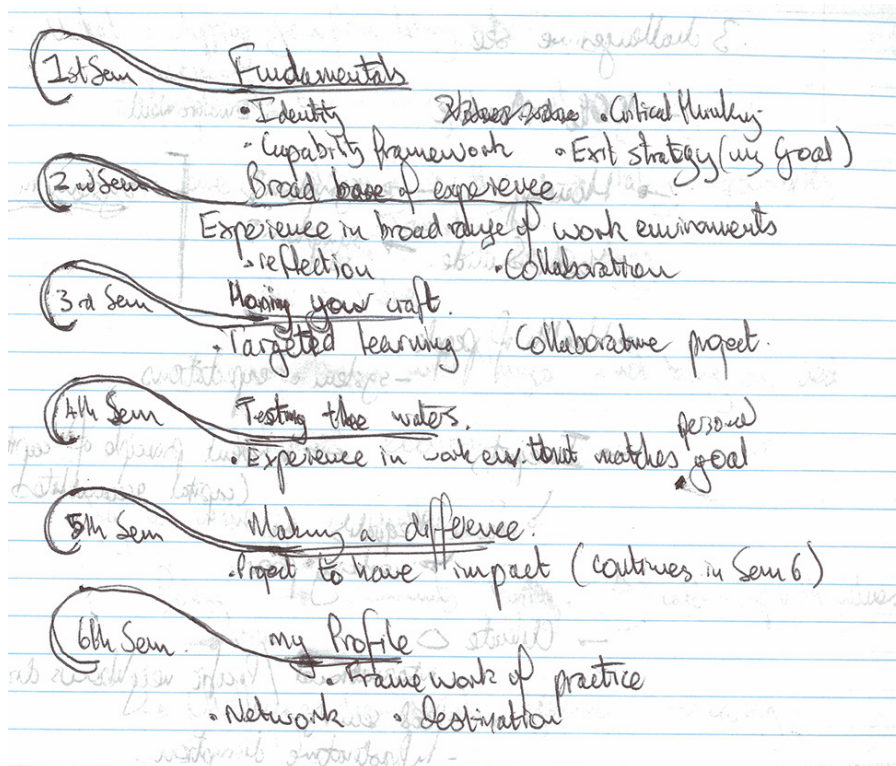 1st Sem Fundamentals
• Identity • Critical thinking
• Capability framework • Exit strategy (my Goal)
2nd Sem Broad base of experience
Experience in broad range of work environments
reflection • Collaboration
3rd Sem Honing your craft.
• Targeted learning Collaborative project.
4th Sem Testing the waters.
personal
• Experience in work env. that matches goal
5th Sem Making a difference.
• Project to have impact (continues in Sem 6)
6th Sem. my Profile
• Framework of practice
• Network • destination